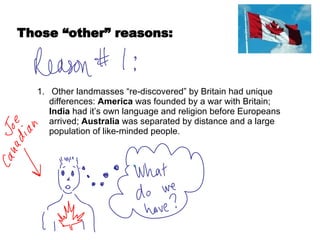 Those “other” reasons:
Reason # 1:
1. Other landmasses “re-discovered” by Britain had unique
differences: America was founded by a war with Britain;
India had it’s own language and religion before Europeans
arrived; Australia was separated by distance and a large
population of like-minded people.
Joe
Canadian
What
do we
have?